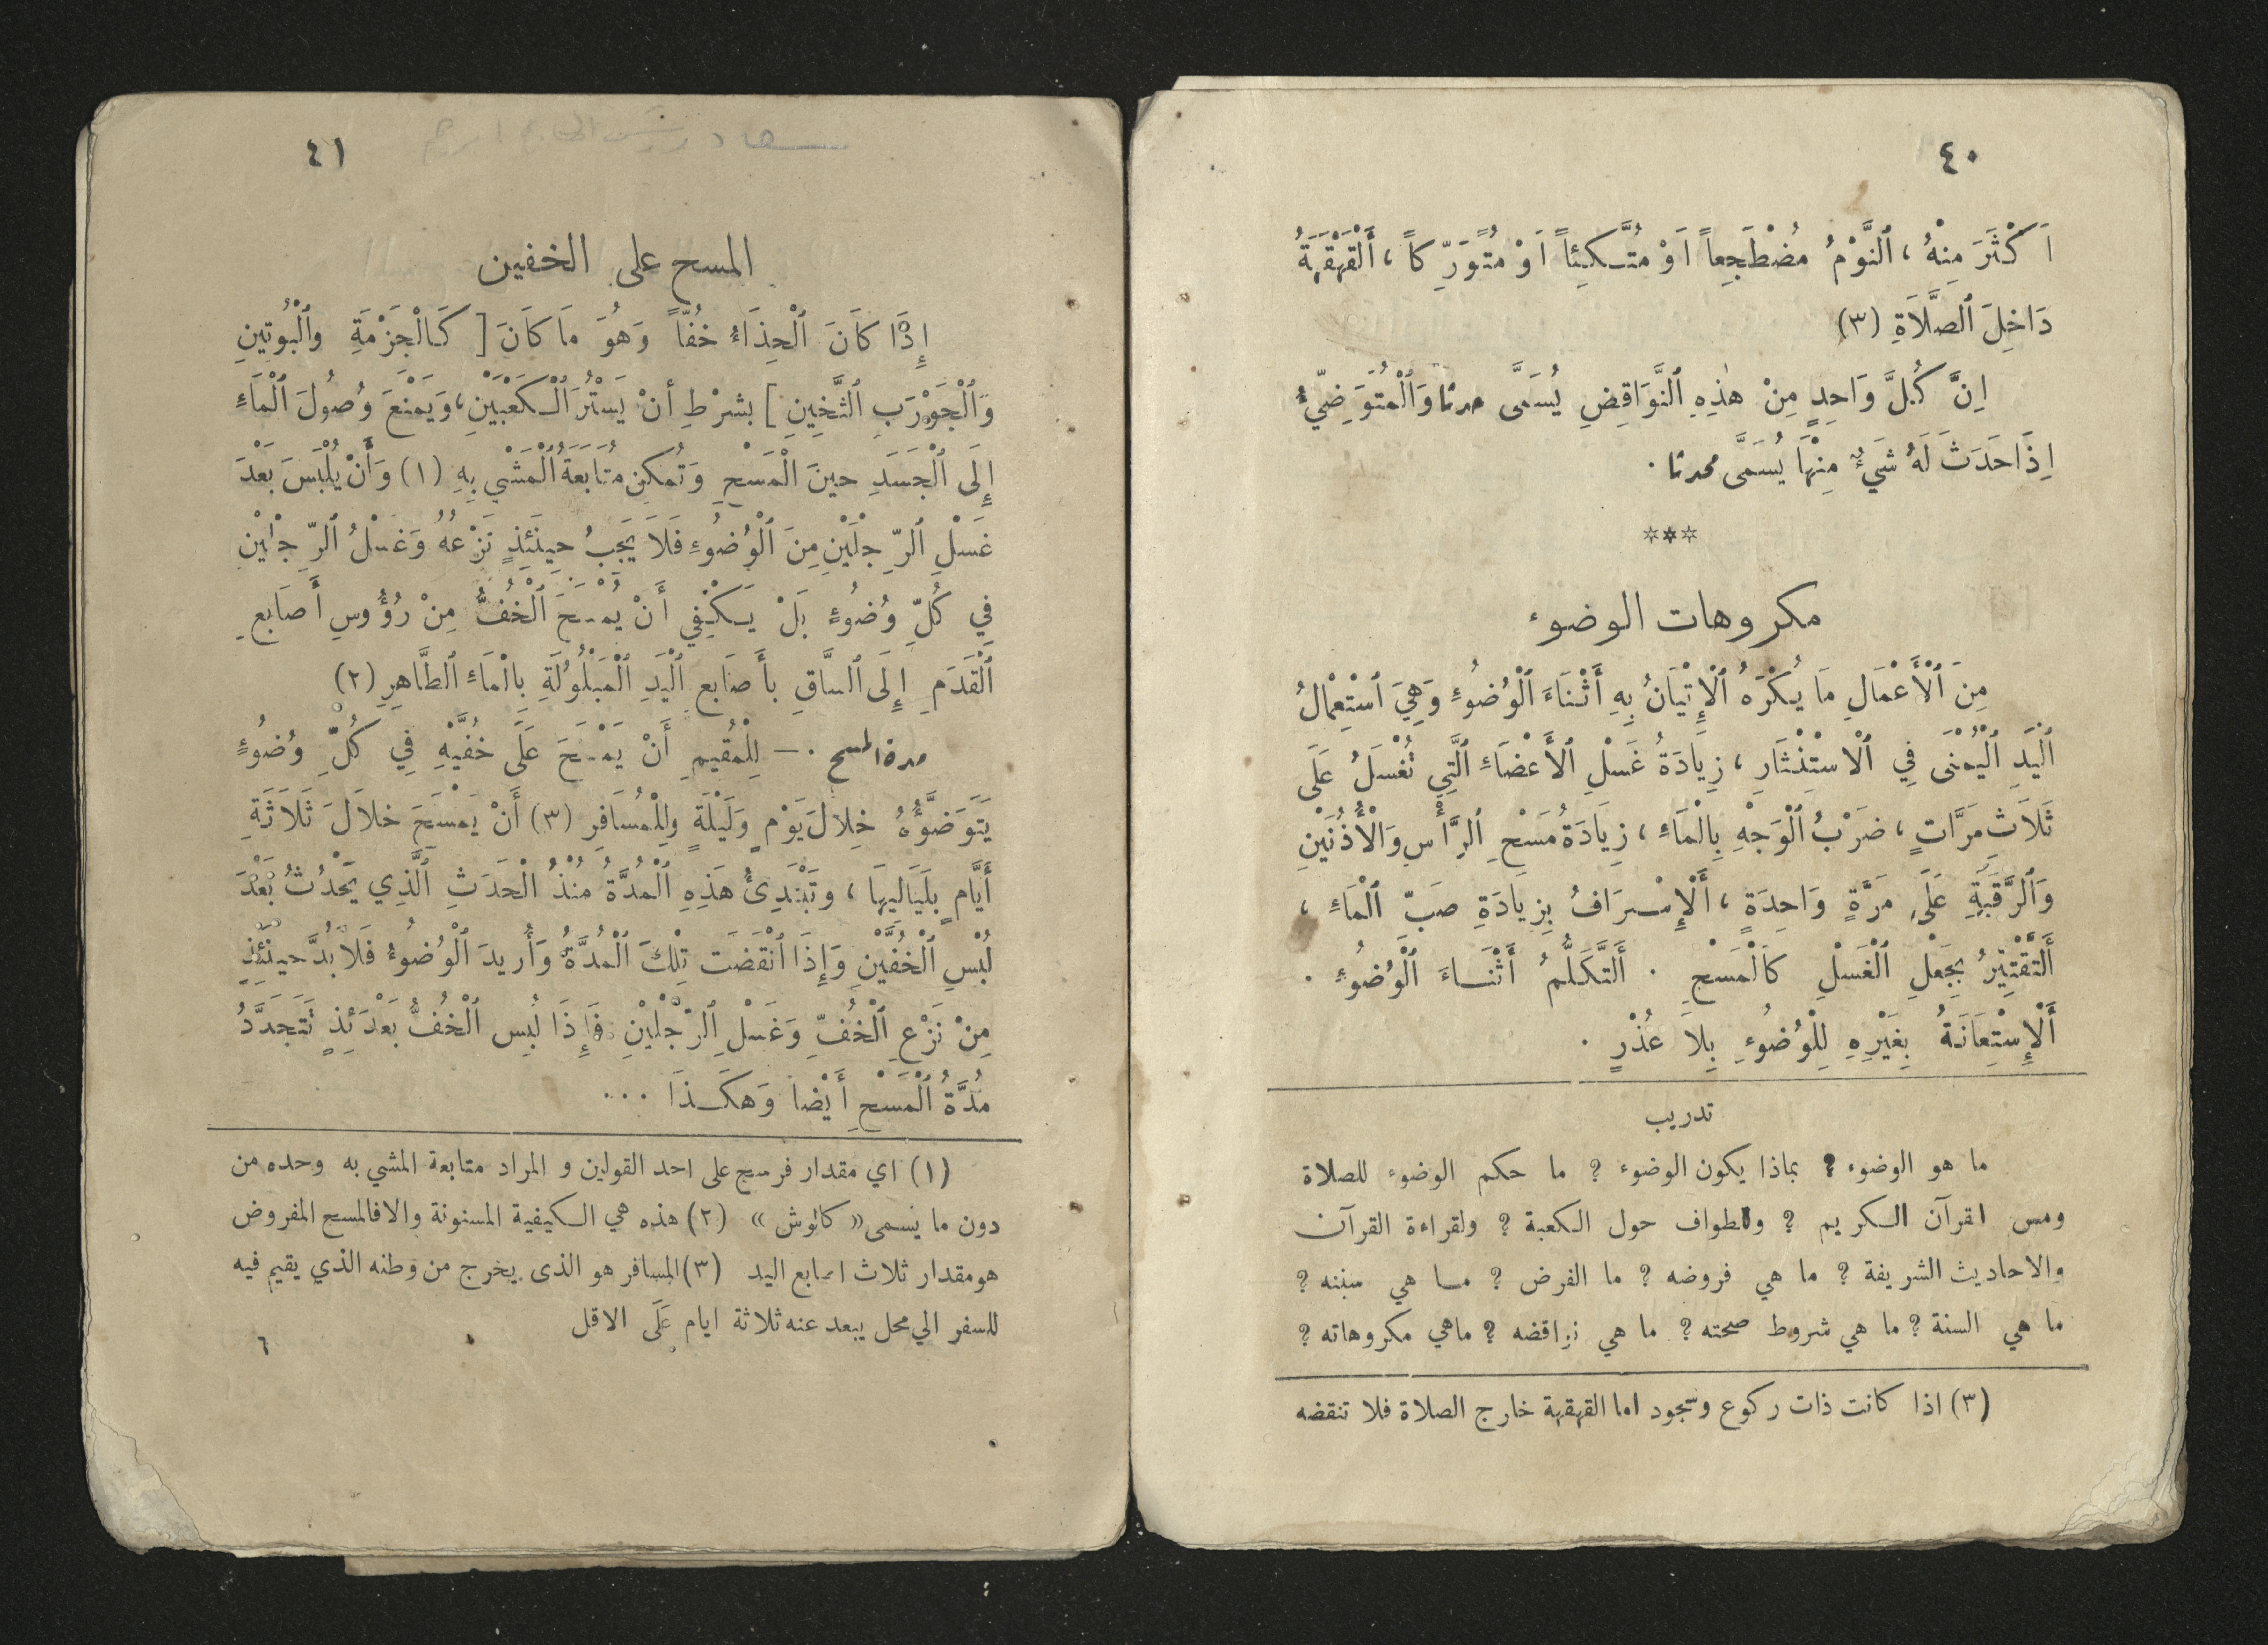 ٤٠
اَكْثَرَ مِنْهُ ، اَلنَّوْمُ مُضْطَجِعاً اَوْ مُتَّكِئاً اَوْ مُتَوَرِّكاً ، أَلْقَهْقَهَةُ
دَاخِلَ اَلصَّلَاةِ (٣)
اِنَّ كُلَّ وَاحِدٍ مِنْ هٰذِهِ اَلنَّوَاقِضِ يُسَمَّى حدثا وَالْمُتَوَضِّيُ
اِذَا حَدَثَ لَهُ شَيْءٌ مِنْهَا يُسَمَّى محدثا .
***
مكروهات الوضوء
مِنَ اَلْأَعْمَالِ مَا يُكْرَهُ اَلْإِتْيَانُ بِهِ أَثْنَاءَ اَلْوُضُوءِ وَهِيَ اَسْتِعْمَالُ
اَلْيَدِ اَلْيُمْنَى فِي اَلْاسْتِنْثَارِ ، زِيَادَةُ غَسْلِ اَلْأَعْضَاءِ اَلَّتِي تُغْسَلُ عَلَى
ثَلَاثِ مَرَّاتٍ ، ضَرْبُ اَلْوَجْهِ بِالْمَاءِ ، زِيَادَةُ مَسْحِ اَلرَّأْسِ وَالْأُذُنَيْنِ
وَاَلرَّقَبَةِ عَلَى مَرَّةٍ وَاحِدَةٍ ، أَلْإِسْرَافُ بِزِيَادَةِ صَبِّ اَلْمَاءِ ،
أَلتَّقْتِيْرُ بِجَعْلِ اَلْغَسْلِ كَالْمَسْحِ . أَلتَّكَلُّمُ أَثْنَاءَ اَلْوُضُوءِ .
أَلْإِسْتِعَانَةُ بِغَيْرِهِ لِلْوُضُوءِ بِلاَ عُذْرٍ .
تدريب
ما هو الوضوء ? بماذا يكون الوضوء ? ما حكم الوضوء للصلاة
ومس القرآن الكريم ? والطواف حول الكعبة ? ولقراءة القرآن
والاحاديث الشريفة ? ما هي فروضه ? ما الفرض ? ما هي سننه ?
ما هي السنة ? ما هي شروط صحته ? ما هي نواقضه ? ماهي مكروهاته ?
(٣) اذا كانت ذات ركوع وسجود اما القهقهة خارج الصلاة فلا تنقضه
٤١
المسح على الخفين
إِذَا كَانَ اَلْحِذَاءُ خُفّاً وَهُوَ مَا كَانَ [ كَالْجَزْمَةِ وَاَلْبُوتِينِ
وَاَلْجَوْرَبِ اَلثَّخِينِ ] بشَرْطِ أَنْ يَسْتُرَ اَلْكَعْبَيْنِ ، وَيَمْنَعَ وُصُولَ اَلْمَاءِ
إِلَى اَلْجَسَدِ حِينَ الْمَسْحِ وَتُمْكِنَ مُتَابَعَةُ اَلْمَشْيِ بِهِ (١) وَأَنْ يُلْبَسَ بَعْدَ
غَسْلِ اَلرِّجْلَيْنِ مِنَ اَلْوُضُوءِ فَلَا يَجِبُ حِينَئِذٍ نَزْعُهُ وَغَسْلُ اَلرِّجْلَيْنِ
فِي كُلِّ وُضُوءٍ بَلْ يَكْفِي أَنْ يُمْسَحَ اَلْخُفُّ مِنْ رُؤُوسِ أَصَابِعِ
اَلْقَدَمِ إِلَى اَلسَّاقِ بأَصَابِعِ اَلْيَدِ اَلْمَبْلُولَةِ بِالْمَاءِ اَلطَّاهِرِ (٢)
مدة المسح . — لِلْمُقِيمِ أَنْ يَمْسَحَ عَلَى خُفَّيْهِ فِي كُلِّ وُضُوءٍ
يَتَوَضَّؤُهُ خِلاَلَ يَوْمٍ وَلَيْلَةٍ وَلِلْمُسَافِرِ (٣) أَنْ يَمْسَحَ خلاَلَ ثَلَاثَةِ
أَيَّامٍ بِلَيَالِيهَا ، وتَبْتَدِئُ هَذِهِ اَلْمُدَّةُ مُنْذُ اَلْحَدَثِ اَلَّذِي يَحْدُثُ بَعْدَ
لُبْسِ اَلْخُفَّيْنِ وَإِذَا اَنْقَضَت تِلْكَ اَلْمُدَّةُ وَأُرِيدَ اَلْوُضُوءُ فَلَا بُدَّ حِينَئِذٍ
مِنْ نَزْعِ اَلْخُفِّ وَغَسْلِ اَلرِّجْلَيْنِ فَإِذَا لُبِس اَلْخُفُّ بَعْدَئِذٍ تَتَجَدَّدُ
مُدَّةُ اَلْمَسْحِ أَيْضاً وَهَكَذَا ...
(١) اي مقدار فرسخ على احد القولين و المراد متابعة المشي به وحده من
دون ما يسمى « كالوش » (٢) هذه هي الكيفية المسنونة والا فالمسح المفروض
هو مقدار ثلاث اصابع اليد (٣) المسافر هو الذى يخرج من وطنه الذي يقيم فيه
للسفر الي محل يبعد عنه ثلاثة ايام عَلَى الاقل
٦